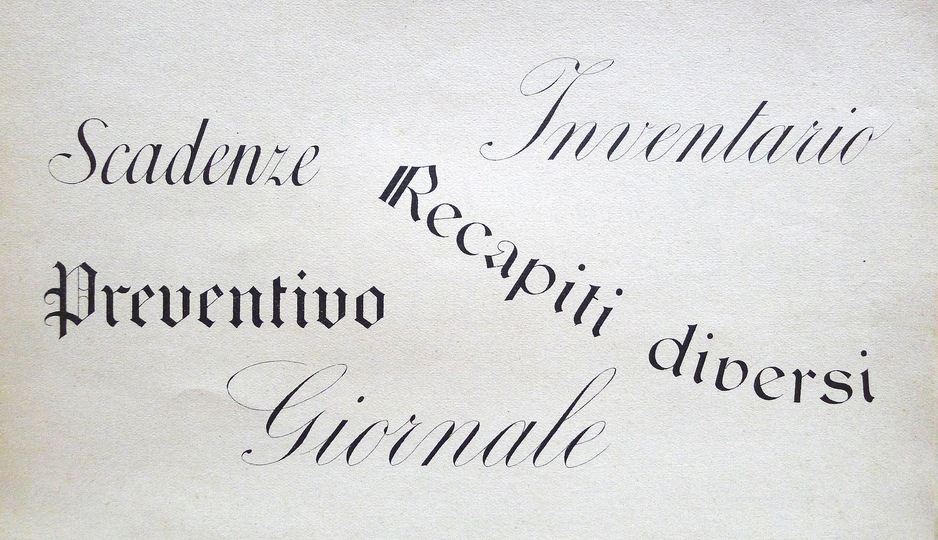 Inventario
Scadenze
Recapiti diversi
Preventivo
Giornale